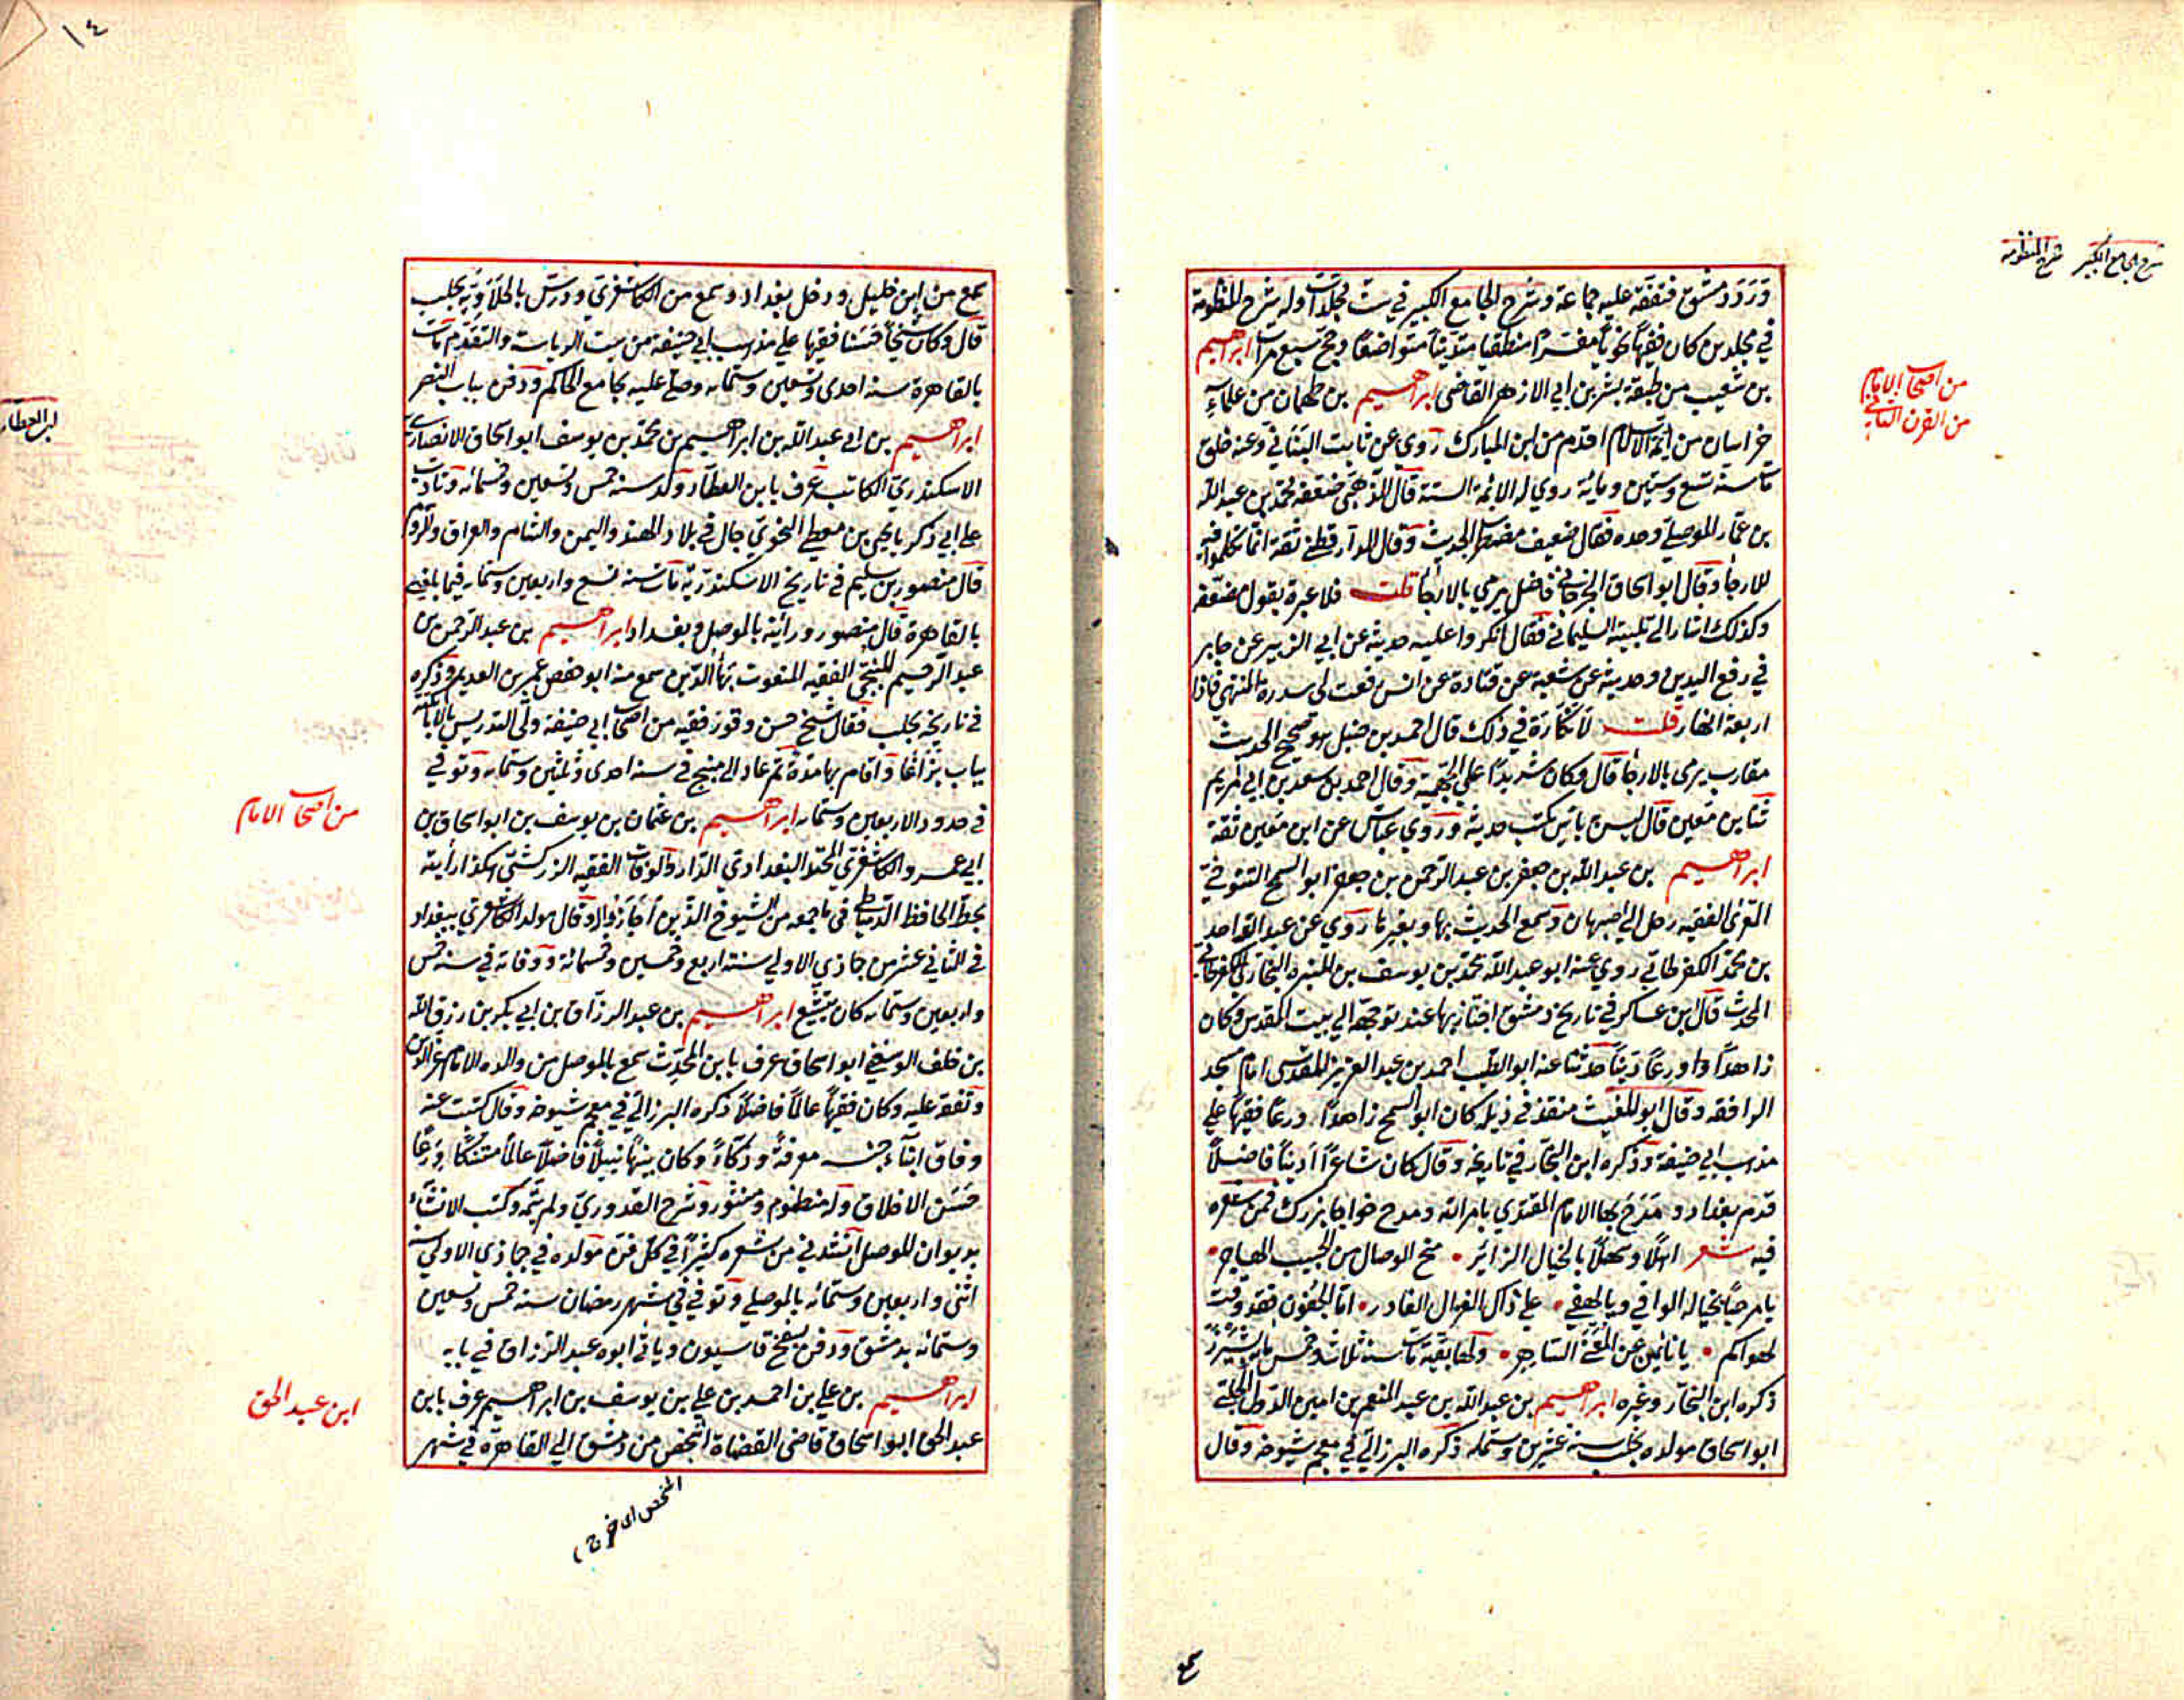 شرح الجامع الكبير شرح المنظومة
وَرَدَ دمشق فتفقه عليه جماعة وشرح الجامع الكبير في ست مجلدات وله شرح المنظومة
في مجلدين كان فقيها نحويا مفسرا منطقيا متدينا متواضعا وحج سبع مرات ابراهيم
بن شعيب من طبقة بشر بن ابي الازهر القاضي ابراهيم بن طهمان من علماء
من اصحاب الامام
من القرن الثاني
خراسان من ائمة الاسلام اقدم من ابن المبارك روي عن ثابت البناني وعنه خلق
مات سنة تسع وستين ومائة روي له الائمة الستة قال الذهبي ضعفه محمد بن عبد الله
بن عمار الموصلي وحده فقال ضعيف مضطرب الحديث وقال الدارقطني ثقة انما تكلموا فيه
للارجاء وقال ابو اسحاق الجوزجاني فاضل يرمي بالارجاء قلت فلا عبرة بقول مضعفه
وكذلك اشار الي تليينه السليماني فقال انكروا عليه حديثه عن ابي الزبير عن جابر
في رفع اليدين وحديثه عن شعبة عن قتادة عن انس رفعت لي سدرة المنتهي فاذا
اربعة انهار قلت لا نكارة في ذلك قال احمد بن حنبل هو صحيح الحديث
مقارب يرمي بالارجاء قال وكان شديدا علي الجهمية وقال احمد بن سعد بن ابي مريم
ثنا بن معين قال ليس به باس يكتب حديثه وروي عباس عن ابن معين ثقة
ابراهيم بن عبد الله بن جعفر بن عبد الرحمن بن جعفر ابو السمح التنوخي
المعري الفقيه رحل الي اصبهان وسمع الحديث بها وبغيرها روي عن عبد الواحد
بن محمد الكفرطابي روي عنه ابو عبد الله محمد بن يوسف بن المنيرة الكفرطابي
المحدث قال بن عساكر في تاريخ دمشق اجتاز بها عند توجهه الي بيت المقدس وكان
زاهدا ورعا دينا حدثنا عنه ابو الطيب احمد بن عبد العزيز المقدسي امام مسجد
الرافقه وقال ابو المغيث منقذ في ذيله كان ابو السمح زاهدا ورعا فقيها علي
مذهب ابي حنيفة وذكره ابن النجار في تاريخه وقال كان شاعرا اديبا فاضلا
قدم بغداد ومدح بها الامام المقتدي بامر الله ومدح خواجا بزرك فمن شعره
فيه شعر اهلا وسهلا بالخيال الزائر منح الوصال من الحبيب الهاجر
يا مرحبا بخياله الوافي ويا لهفي علي ذاك الغزال الغادر اما الجفون فقد وفت
لهواكم يا نائمين عن المعني الساهر ولها بقية مات سنة ثلاث وخمس مائة بشيزر
ذكره ابن النجار وغيره ابراهيم بن عبد الله بن عبد المنعم بن امين الدولة الحلبي
ابو اسحاق مولده بحلب سنة عشرين وستمائه ذكره البرزالي في معجم شيوخه وقال
سمع
١٤
سمع من ابن خليل ودخل بغداد وسمع من الكاشغري ودرس بالحلاوية بحلب
قال وكان شيخا حسنا فقيها علي مذهب ابي حنيفة من بيت الرياسة والتقدم مات
بالقاهرة سنة احدي وتسعين وستمائه وصلي عليه بجامع الحاكم ودفن بباب النصر
ابن العطار
ابراهيم بن ابي عبد الله بن ابراهيم بن محمد بن يوسف ابو اسحاق الانصاري
الاسكندري الكاتب عرف بابن العطار ولد سنة خمس وتسعين وخمسمائه وتادب
علي ابي زكريا يحيي بن معطي النحوي جال في بلاد الهند واليمن والشام والعراق والروم
قال منصور بن سليم في تاريخ الاسكندرية مات سنة تسع واربعين وستمائه فيما بلغني
بالقاهرة قال منصور ورأيته بالموصل وبغداد ابراهيم بن عبد الرحمن بن
عبد الرحيم المنبجي الفقيه المنعوت بهاء الدين سمع منه ابو حفص عمر بن العديم وذكره
في تاريخه بحلب فقال شيخ حسن وقور فقيه من اصحاب ابي حنيفة ولي التدريس بالاتابكية
بباب بزاغا واقام بها مدة ثم عاد الي منبج في سنة احدي وثلثين وستمائه وتوفي
في حدود الاربعين وستمائه ابراهيم بن عثمان بن يوسف بن ابو اسحاق بن
من اصحاب الامام
ابي عمرو الكاشغري المحتد البغدادي الدار والوفاة الفقيه الزركشي هكذا رأيته
بخط الحافظ الدمياطي في ما جمعه من الشيوخ الذين اجازوا له وقال مولد الكاشغري ببغداد
في الثاني عشر من جمادي الاولي سنة اربع وخمسين وخمسمائة ووفاته في سنة خمس
واربعين وستمائه كان يتشيع ابراهيم بن عبد الرزاق بن ابي بكر بن رزق الله
بن خلف الرسعني ابو اسحاق عرف بابن المحدث سمع بالموصل من والده الامام عز الدين
وتفقه عليه وكان فقيها عالما فاضلا ذكره البرزالي في معجم شيوخه وقال كتبت عنه
وفاق ابناء جنسه معرفة وذكاء وكان نبيها نبيلا فاضلا عالما متنسكا ورعا
حسن الاخلاق وله منظوم ومنثور وشرح القدوري ولم يتمه وكتب الانشاء
بديوان الموصل انشدني من شعره كثيرا في كل فن مولده في جمادي الاولي سنة
اثني واربعين وستمائه بالموصل وتوفي في شهر رمضان سنة خمس وتسعين
وستمائه بدمشق ودفن بسفح قاسيون وياتي ابوه عبد الرزاق في بابه
ابراهيم بن علي بن احمد بن علي بن يوسف بن ابراهيم عرف بابن
ابن عبد الحق
عبد الحق ابو اسحاق قاضي القضاة اشخص من دمشق الي القاهرة في شهر